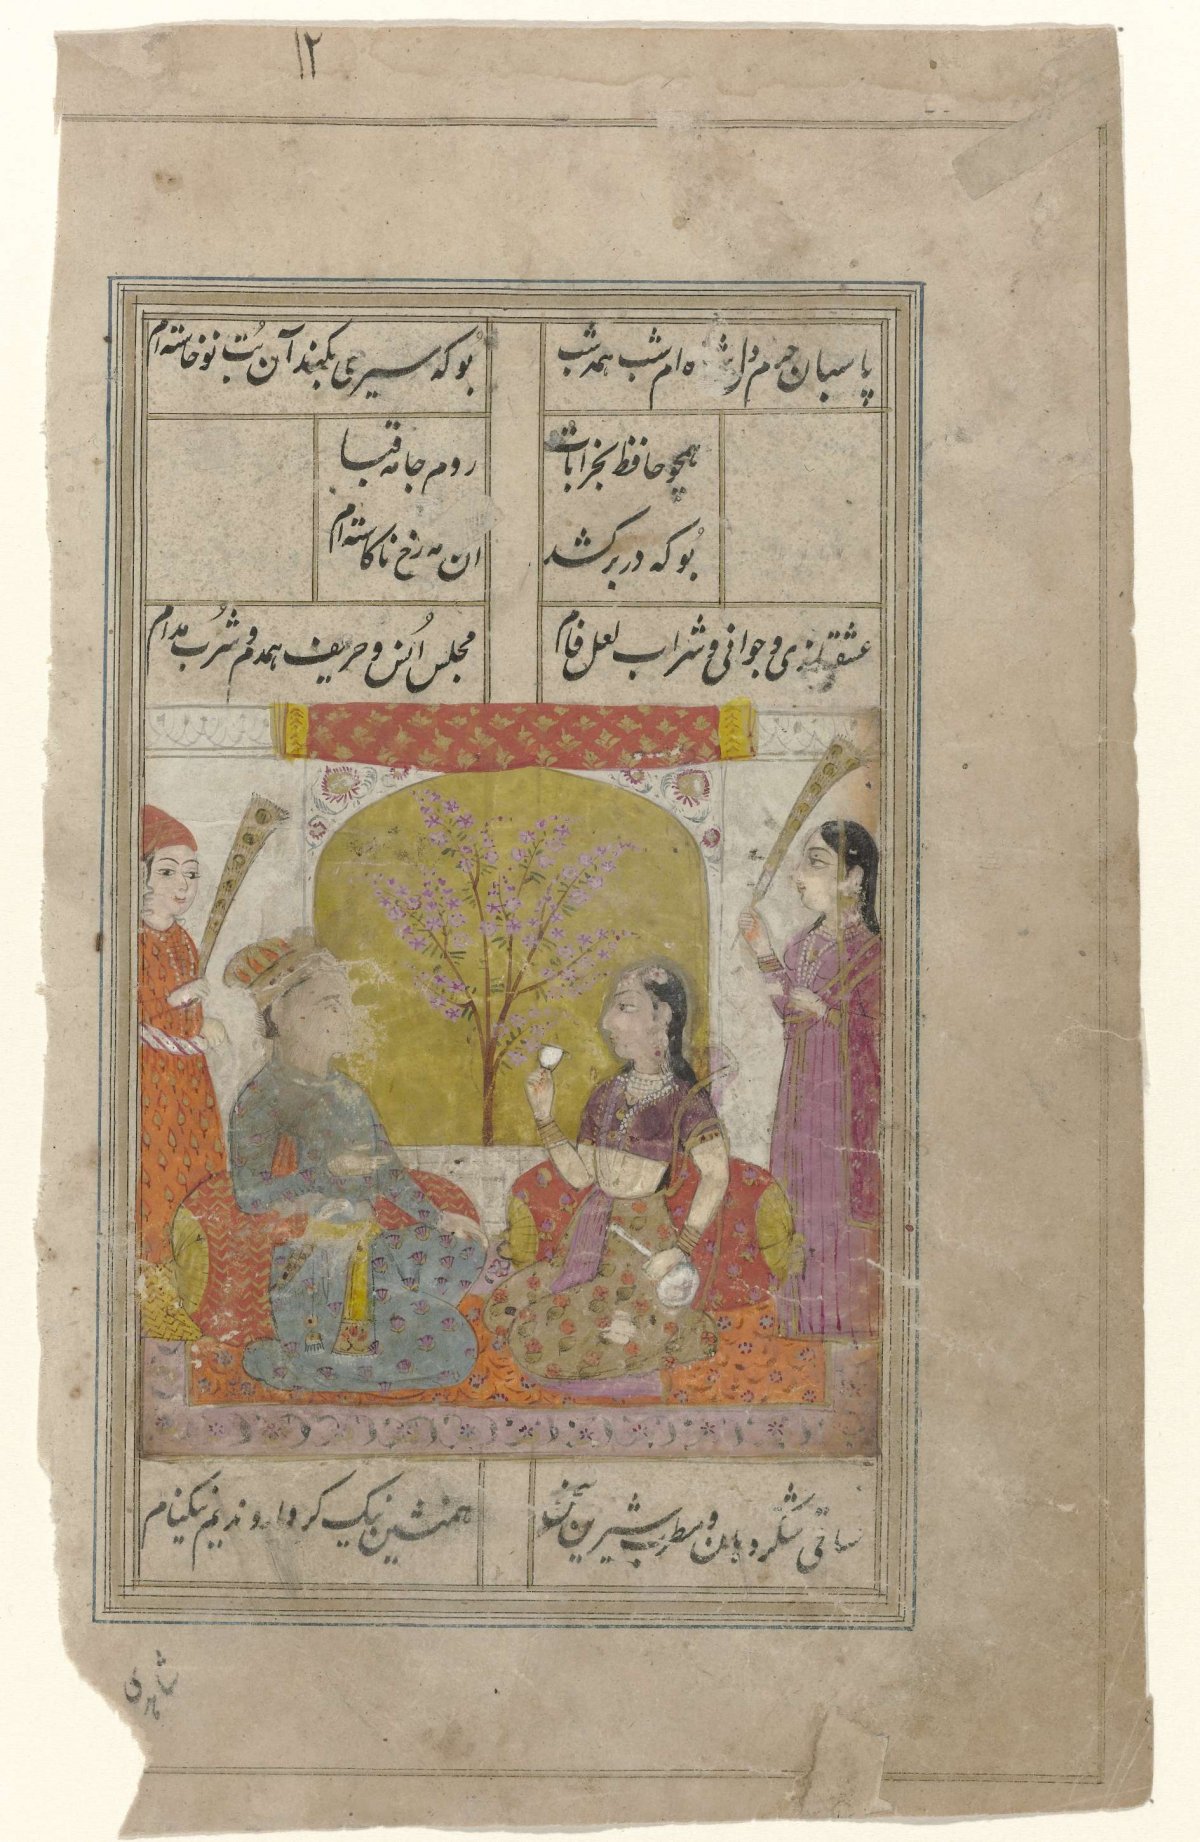 ۱۲
پاسبان حرم دل شده ام شب همه شب
بو که سیری بکند آن بُت نوخاسته ام
همچو حافظ بخرابات
روم جامه قبا
بُو که در بر کشد
ان مه رخ ناکاسته ام
عشقبازی و جوانی و شراب لعل فام
مجلس اُنس و حریف همدم و شُرب مدام
ساقی شکر دهان و مطرب شیرین سخن
همنشین نیک کردار و ندیم نیکنام